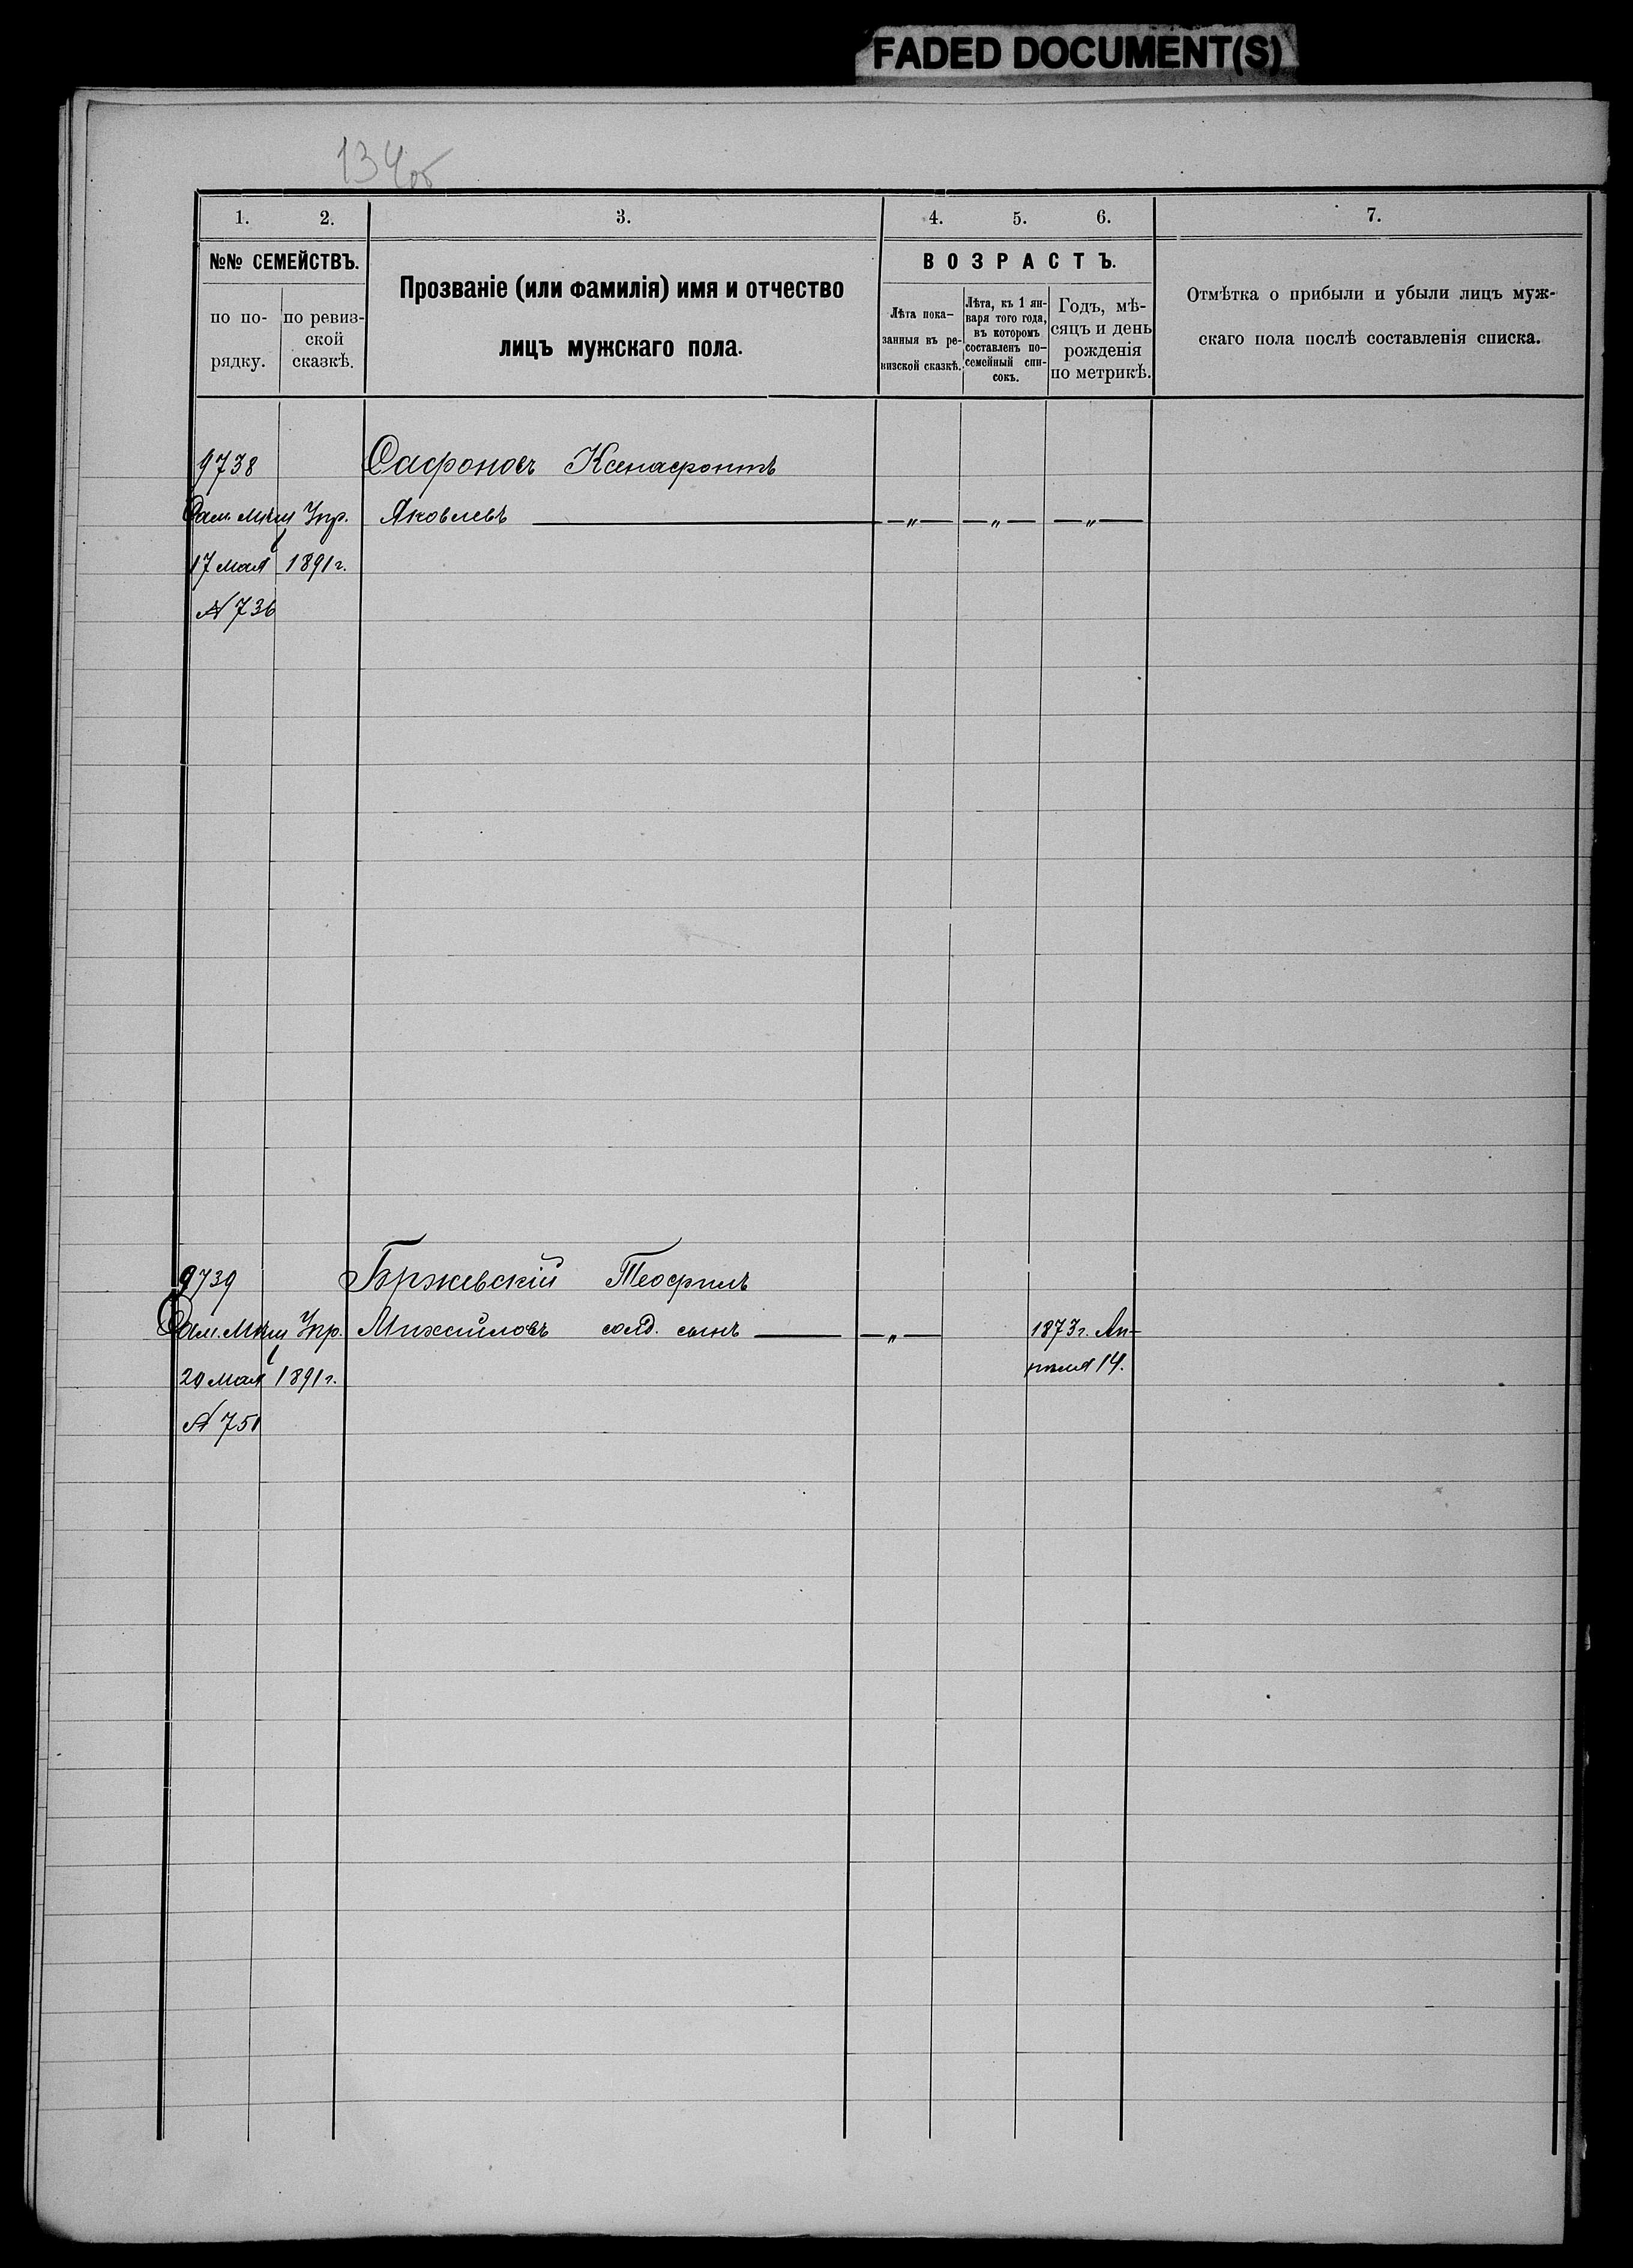 FADED DOCUMENT(S)
134об
1. 2. 3. 4. 5. 6. 7.
№№ СЕМЕЙСТВЪ.
по по-
рядку.
по ревиз-
ской
сказкѣ.
Прозваніе (или фамилія) имя и отчество
лицъ мужскаго пола.
ВОЗРАСТЪ.
Лѣта пока-
занныя въ ре-
визской сказкѣ.
Лѣта, къ 1 ян-
варя того года,
въ которомъ
составленъ по-
семейный спи-
сокъ.
Годъ, мѣ-
сяцъ и день
рожденія
по метрикѣ.
Отмѣтка о прибыли и убыли лицъ муж-
скаго пола послѣ составленія списка.
9738 Сафоновъ Ксенафонтъ
Сам. Мѣщ Упр. Яковлевъ — — „ — — „ — — „ —
17 мая 1891 г.
№ 736
9739 Бржевскій Теофилъ
Сам. Мѣщ Упр. Михайловъ солд. сынъ — — „ — 1873 г. Ап-
20 мая 1891 г. рѣля 14.
№ 751